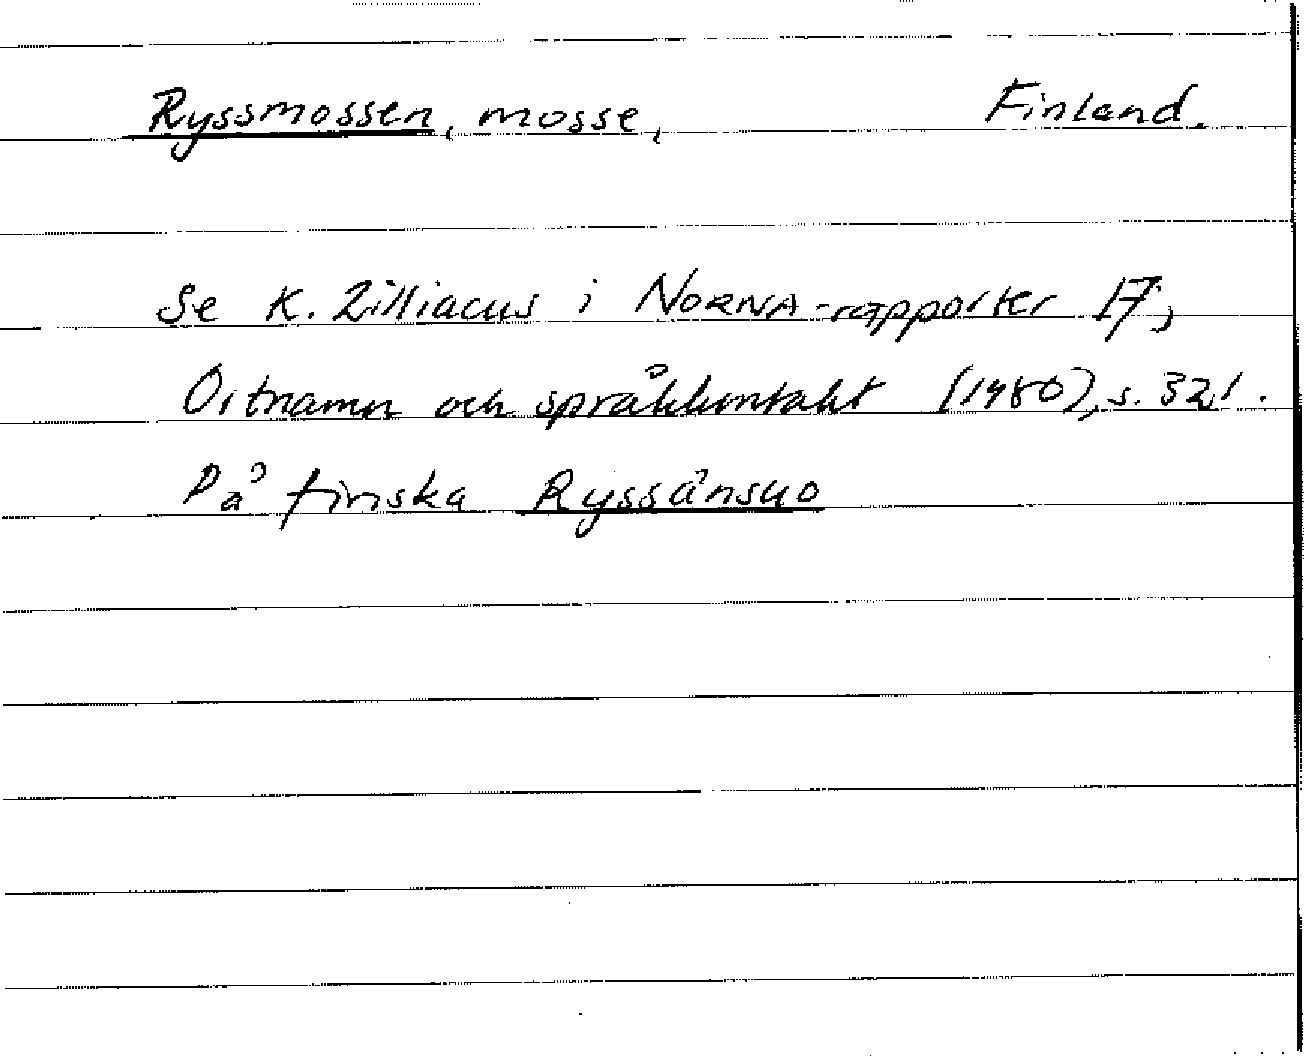 Ryssmossen, mosse, Finland.
Se K. Zilliacus i NORNA-rapporter 17,
Ortnamn och språkkontakt (1980), s. 321.
På finska Ryssänsuo